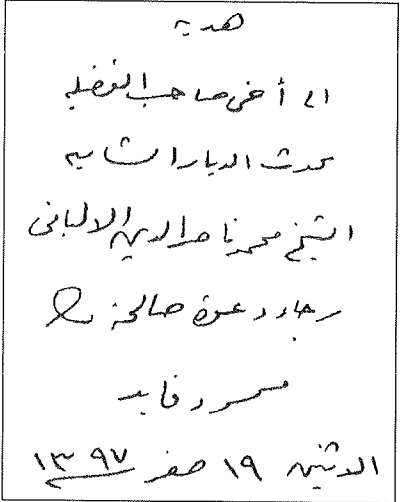 هدية
الى أخى صاحب الفضيلة
محدث الديار الشامية
الشيخ محمد ناصر الدين الالبانى
رجاء دعوة صالحة
محمود فايد
الاثنين ١٩ صفر ١٣٩٧